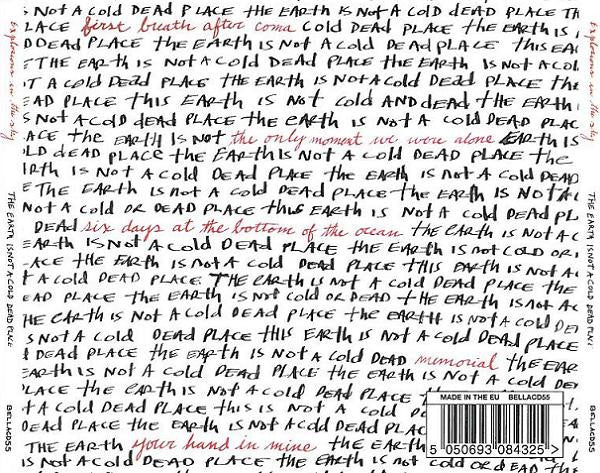 S NOT A COLD DEAD PLACE THE EARTH IS NOT A COLD dEAD PLACE TH
LACE first breath after coma COLD DEAD PLACE THE EARTH IS
DEAD PLACE THE EARTH IS NOT A COLD DEAD PLACE THIS EA
THE EARTH IS NOT A COLD DEAD PLACE THE EARTH IS NOT A COL
T A COLD DEAD PLACE THE EARTH IS NOT A COLD DEAD PLACE THE
EAD PLACE THIS EARTH IS NOT COLD AND dEAD THE EARTH
S NOT A COLD DEAD PLACE THE EARTH IS NOT A COLD DEAD PLAC
ACE THE EARTH IS NOT the only moment we were alone EARTH IS
LD dEAD PLACE THE EARTH IS NOT A COLD DEAD PLACE THE
RTH IS NOT A COLD DEAD PLACE THE EARTH IS NOT A COLD DEAD
THE EARTH IS NOT A COLD DEAD PLACE THE EARTH IS NOT A
NOT A COLD OR DEAD PLACE THIS EARTH IS NOT A COLD DEAD PL
DEAD six days at the bottom of the ocean THE EARTH IS NOT A C
EARTH IS NOT A COLD DEAD PLACE THE EARTH IS NOT COLD OR
IS NOT A COLD DEAD PLACE THIS EARTH IS NOT A
T A COLD DEAD PLACE THE EARTH IS NOT A COLD DEAD PLACE THE
EAD PLACE THE EARTH IS NOT COLD OR DEAD THE EARTH IS NOT A C
HE EARTH IS NOT A COLD DEAD PLACE THE EARTH IS NOT A COLD DE
S NOT A COLD DEAD PLACE THIS EARTH IS NOT A COLD DEAD PLACE
DEAD PLACE THE EARTH IS NOT A COLD DEAD memorial THE EAR
EARTH IS NOT A COLD DEAD PLACE THE EARTH IS NOT A COLD DEAD
PLACE THE EARTH IS NOT A COLD DEAD PLACE
T A COLD DEAD PLACE THIS IS NOT A COLD
DEAD PLACE THE EARTH IS NOT A COLD DEAD PLA
THE EARTH your hand in mine THE EARTH
IS NOT A COLD DEAD PLACE THE EARTH IS NOT COLD OR DEAD THE EARTH
MADE IN THE EU BELLACD55
5 050693 084325 >
Explosions in the sky
THE EARTH IS NOT A COLD DEAD PLACE
BELLACD55
Explosions in the sky
THE EARTH IS NOT A COLD DEAD PLACE
BELLACD55